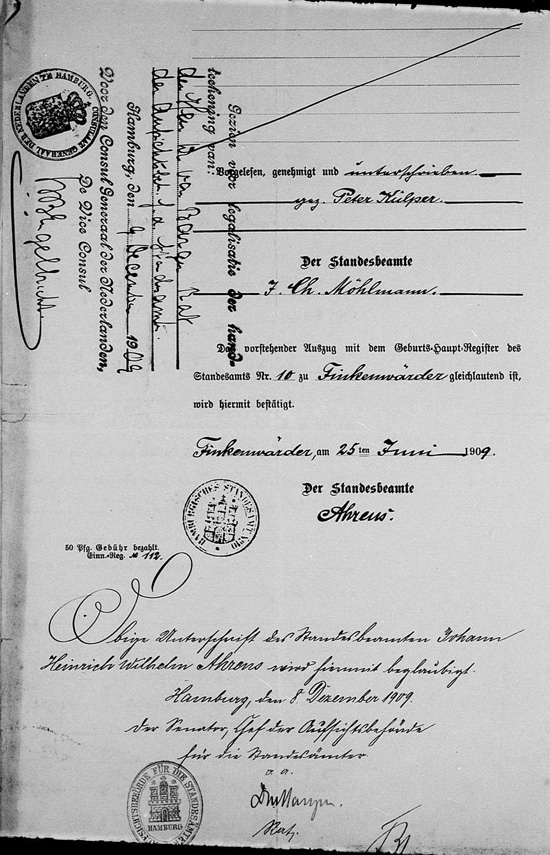 Vorgelesen, genehmigt und unterschrieben.
gez. Peter Külper.
Der Standesbeamte
J. Ch. Möhlmann.
Daß vorstehender Auszug mit dem Geburts-Haupt-Register des
Standesamts Nr. 10 zu Finkenwärder gleichlautend ist,
wird hiermit bestätigt.
Finkenwärder, am 25 ten Juni 1909.
Der Standesbeamte
Ahrens.
HAMBURGISCHES STANDESAMT No 10
50 Pfg. Gebühr bezahlt.
Einn.-Reg. № 112.
Obige Unterschrift des Standesbeamten Johann
Heinrich Wilhelm Ahrens wird hiermit beglaubigt.
Hamburg, den 8 Dezember 1909.
Der Senator, Chef der Aufsichtsbehörde
für die Standesämter
a. a.
Rat.
AUFSICHTSBEHÖRDE FÜR DIE STANDESÄMTER
HAMBURG
Gezien voor legalisatie der hand-
teekening van:
den Heer
Rat
der Aufsichtsbeh. f. d. Standesämt.
Hamburg, den 9 December 1909
Voor den Consul Generaal der Nederlanden,
De Vice Consul
CONSULAAT GENERAAL DER NEDERLANDEN TE HAMBURG.